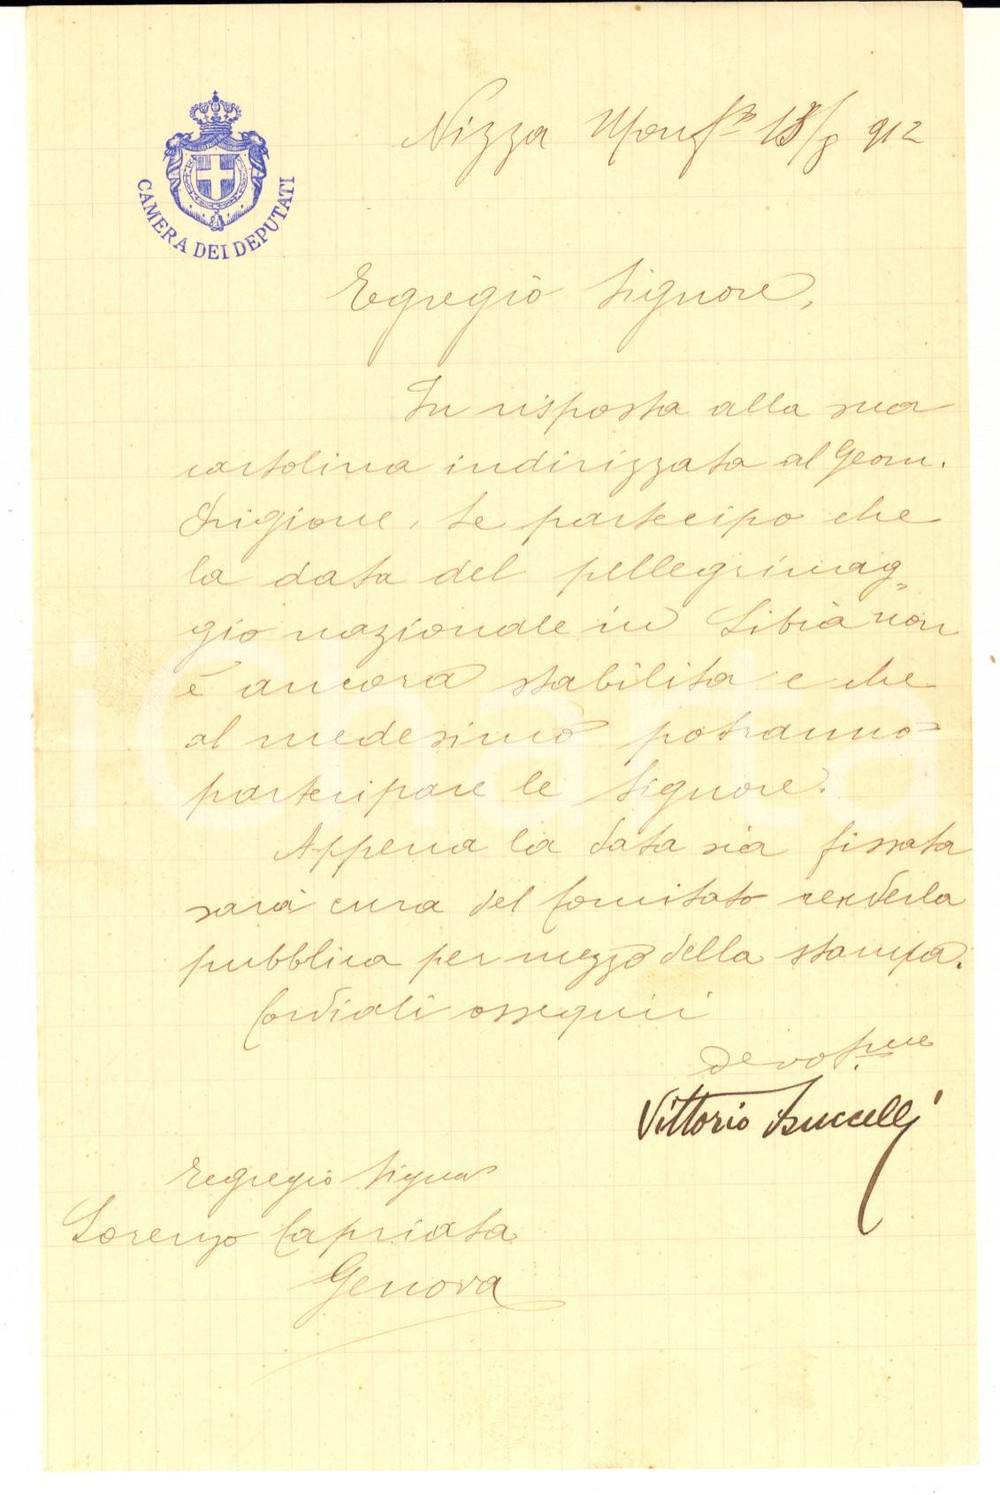 CAMERA DEI DEPUTATI
Nizza Monf.to 912
Egregio Signore,
In risposta alla sua
cartolina indirizzata al Geom.
Le partecipo che
la data del pellegrinag=
gio nazionale in Libia non
è ancora stabilita e che
al medesimo potranno
partecipare le Signore.
Appena la data sia fissata
sarà cura del Comitato renderla
pubblica per mezzo della stampa.
Cordiali ossequii
devot.mo
Vittorio Buccelli
Egregio Signor
Lorenzo Capriata
Genova
iCharta